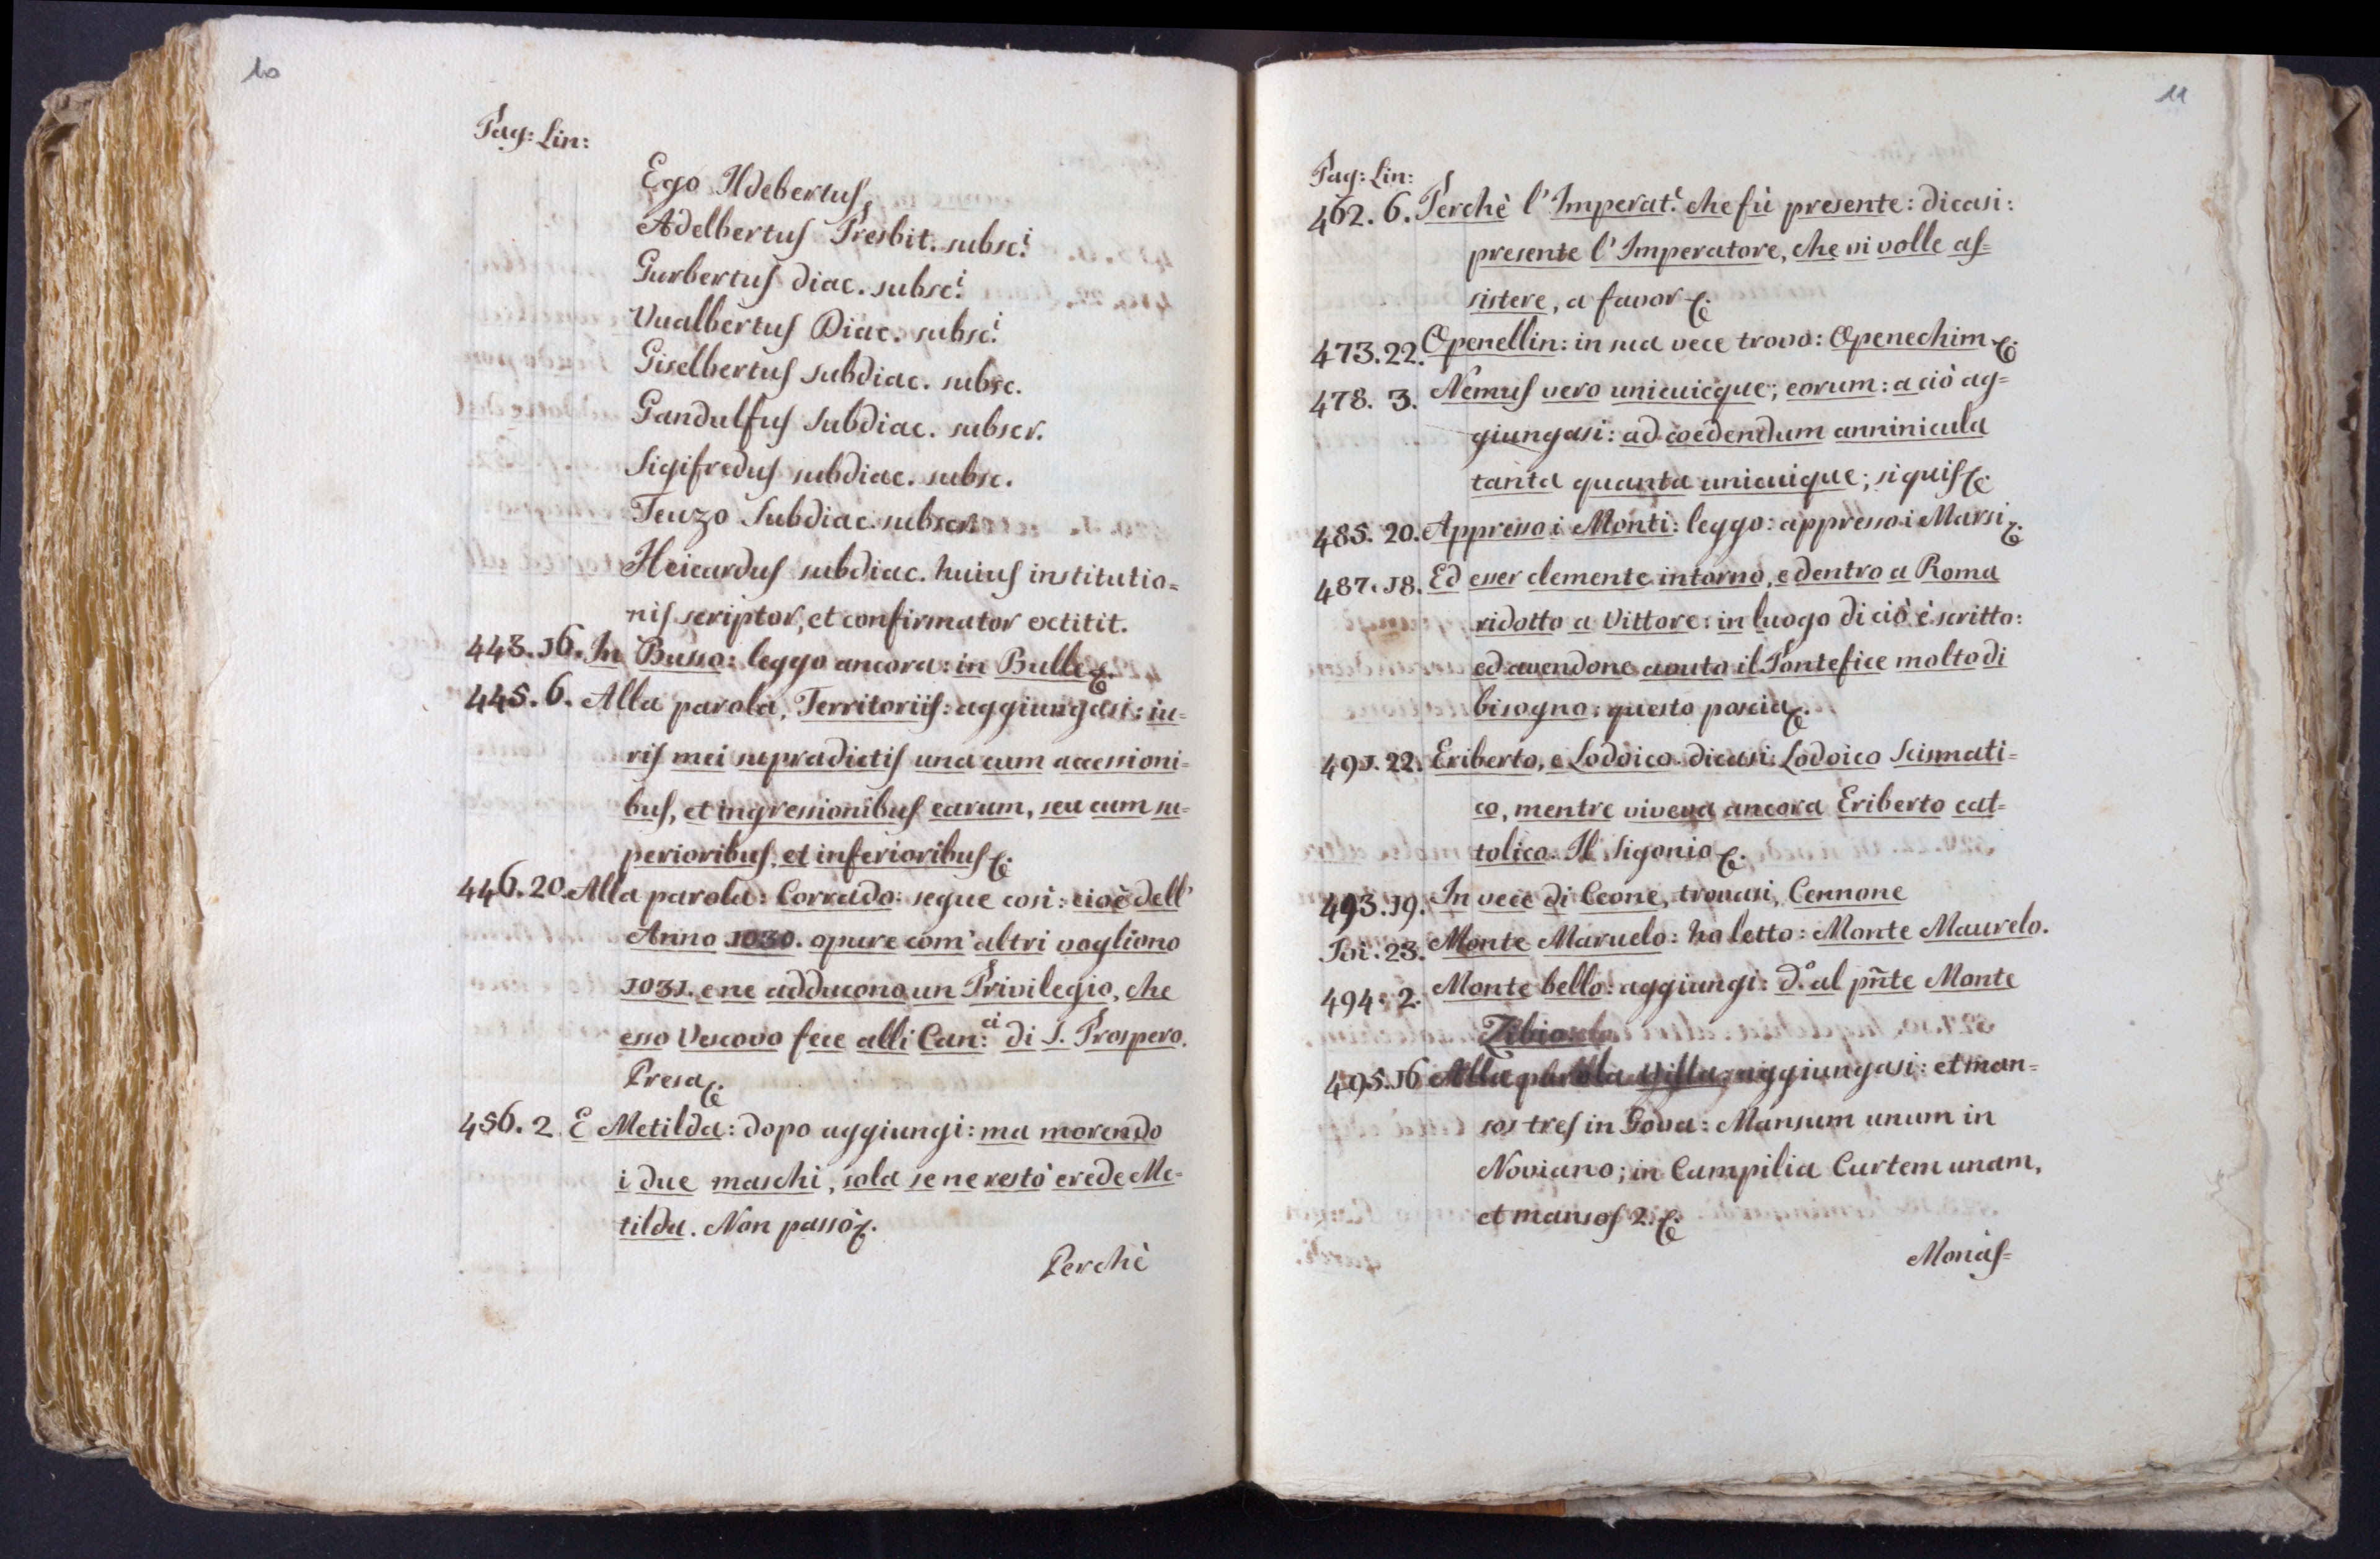 10
Pag: Lin:
Ego Ildebertus,
Adelbertus Presbit. subsc.i
Gurbertus diac. subsc.i
Vualbertus Diac. subsc.i
Giselbertus subdiac. subsc.
Gandulfus subdiac. subscr.
Sigifredus subdiac. subsc.
Teuzo Subdiac. subscr.
Heicardus subdiac. huius institutio=
nis scriptor, et confirmator extitit.
443.16. In Busso: leggo ancora: in Bulle &c.
445.6. Alla parola, Territoriis: aggiungasi: iu=
ris mei supradictis una cum accessioni=
bus, et ingressionibus earum, seu cum su=
perioribus, et inferioribus &c.
446.20. Alla parola: Corrado: segue così: cioè dell'
Anno 1030. opure com' altri vogliono
1031. e ne adducono un Privilegio, che
esso Vescovo fece alli Can:ci di S. Prospero.
Presa &c.
456.2. E Metilda: dopo aggiungi: ma morendo
i due maschi, sola se ne restò erede Me=
tilda. Non passò &c.
Perchè
11
Pag: Lin:
462.6. Perchè l'Imperat.e che fù presente: dicasi:
presente l'Imperatore, che vi volle as=
sistere, a favor &c.
473.22. Openellin: in sua vece trovo: Openechim &c.
478.3. Nemus vero unicuicque; eorum: a ciò ag=
giungasi: ad coedendum anninicula
tanta quanta unicuique; si quis &c.
485.20. Appresso i Monti: leggo: appresso i Marsi &c.
487.18. Ed esser clemente intorno, e dentro a Roma
ridotto a Vittore: in luogo di ciò è scritto:
ed avendone avuto il Pontefice molto di
bisogno; questo poscia &c.
491.22. Eriberto, e Lodoico. dicasi: Lodoico Scismati=
co, mentre viveva ancora Eriberto cat=
tolico. Il Sigonio &c.
493.19. In vece di Ceone, trovasi, Cennone
Ivi.23. Monte Maruelo: ho letto: Monte Maurelo.
494.2. Monte bello: aggiungi: d.o al pñte Monte
Zibio:
495.16 Alla parola Villa, aggiungasi: et man=
sos tres in Gova: Mansum unum in
Noviano; in Campilia Curtem unam,
et mansos 2. &c.
Monas=